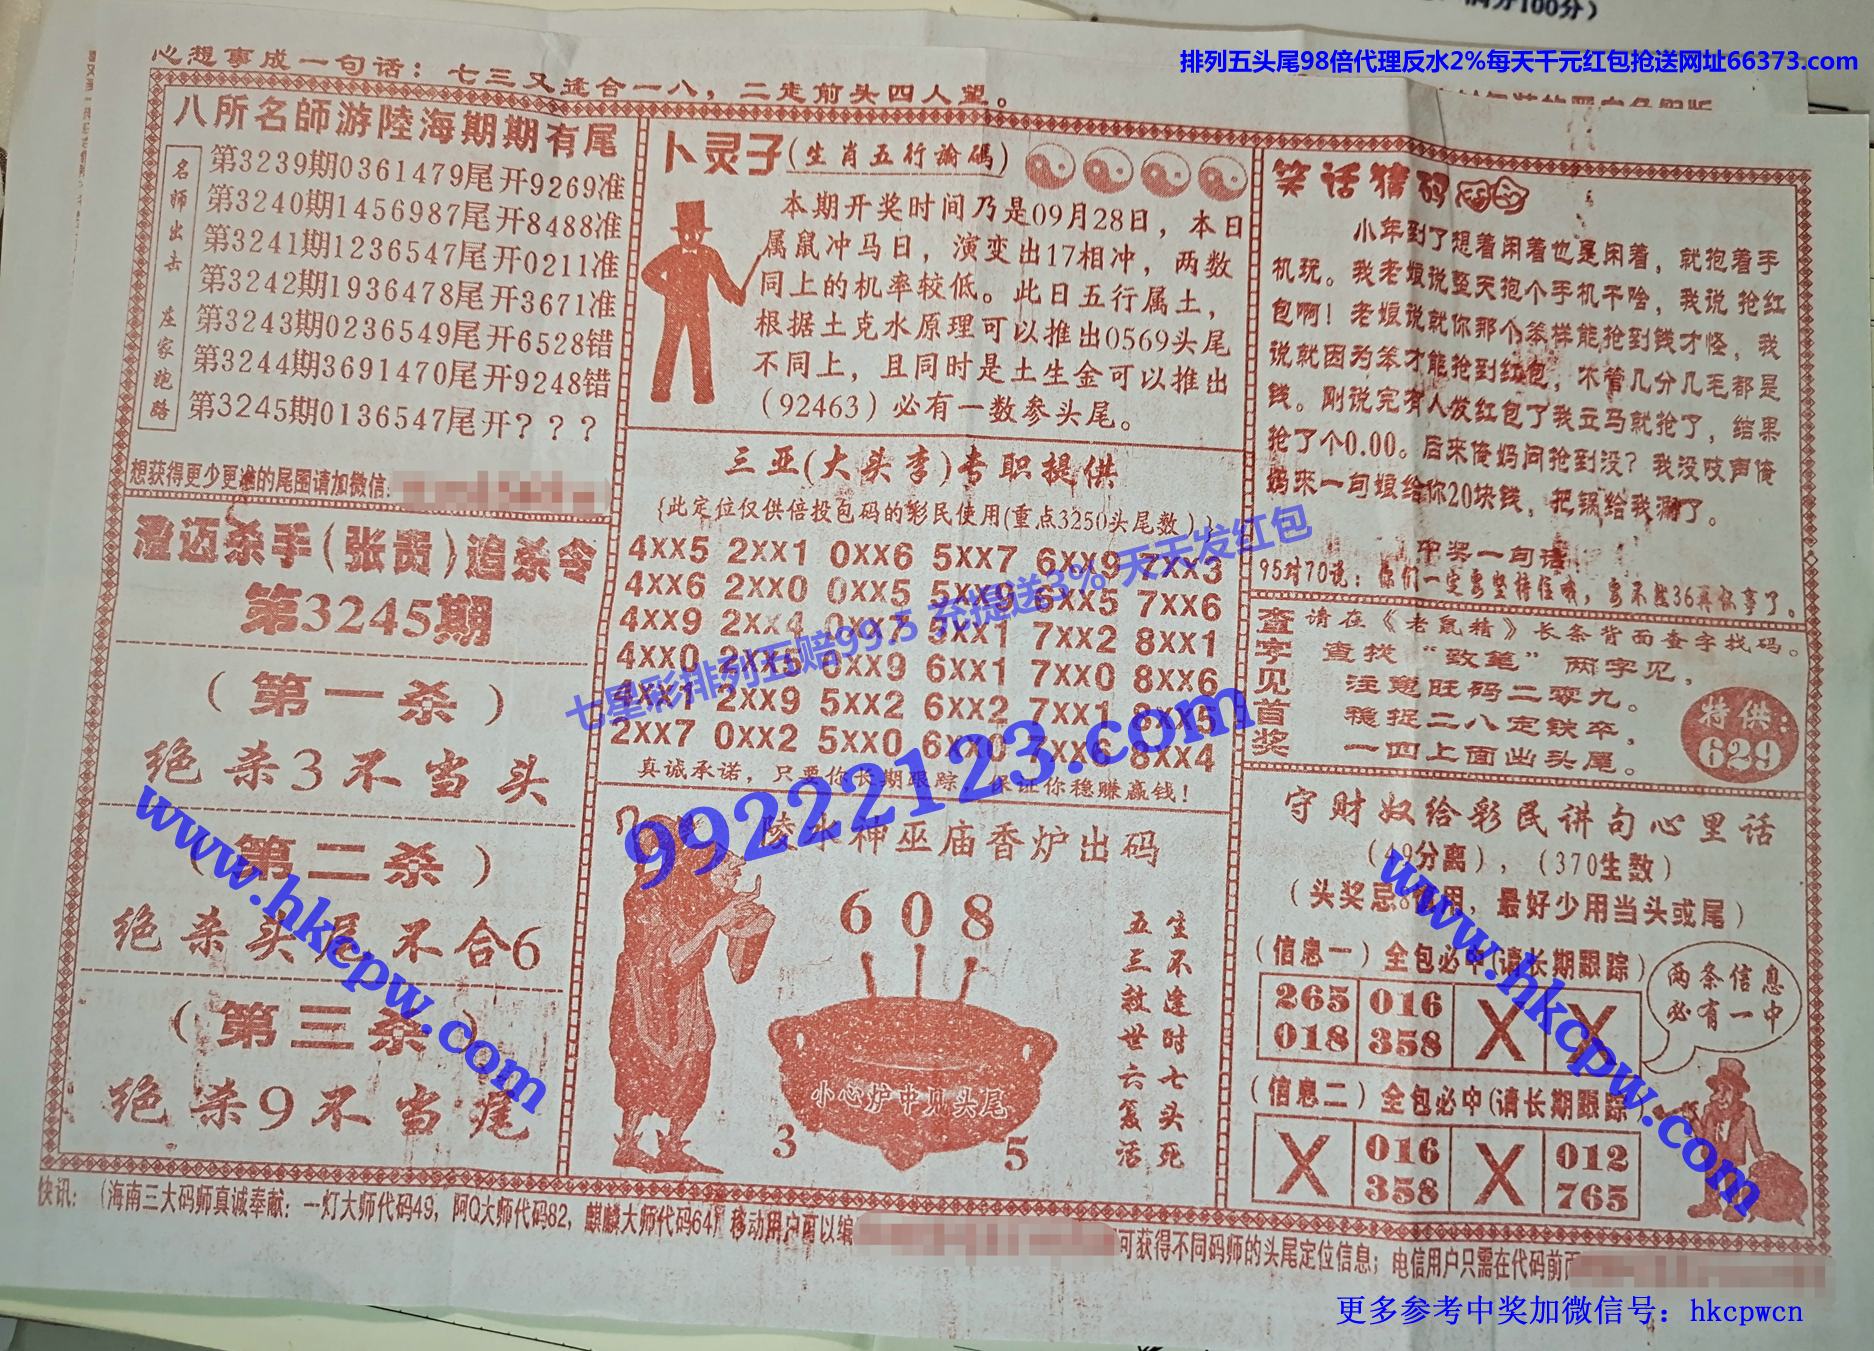 满分100分）
排列五头尾98倍代理反水2%每天千元红包抢送网址66373.com
心想事成一句话：七三又逢合一八，二走前头四人望。
八所名師游陸海期期有尾
名师出击 庄家跑路
第3239期0361479尾开9269准
第3240期1456987尾开8488准
第3241期1236547尾开0211准
第3242期1936478尾开3671准
第3243期0236549尾开6528错
第3244期3691470尾开9248错
第3245期0136547尾开？？？
想获得更少更准的尾图请加微信:
澄迈杀手(张贵)追杀令
第3245期
（第一杀）
绝杀3不当头
（第二杀）
绝杀头尾不合6
（第三杀）
绝杀9不当尾
卜灵子(生肖五行論碼)
本期开奖时间乃是09月28日，本日
属鼠冲马日，演变出17相冲，两数
同上的机率较低。此日五行属土，
根据土克水原理可以推出0569头尾
不同上，且同时是土生金可以推出
（92463）必有一数参头尾。
三亚(大头李)专职提供
{此定位仅供倍投包码的彩民使用(重点3250头尾数)}
4XX5 2XX1 0XX6 5XX7 6XX9 7XX3
4XX6 2XX0 0XX5 5XX9 6XX5 7XX6
4XX9 2XX4 0XX7 5XX1 7XX2 8XX1
4XX0 2XX5 0XX9 6XX1 7XX0 8XX6
4XX1 2XX9 5XX2 6XX2 7XX1 8XX5
2XX7 0XX2 5XX0 6XX0 7XX6 8XX4
真诚承诺，只要你长期跟踪 保证你稳赚赢钱！
七星彩排列五赔99.5 充提送3% 天天发红包
99222123.com
陵水神巫庙香炉出码
608
小心炉中见头尾
3
5
生不逢时七头死
五三救世六复活
笑话猜码
小年到了想着闲着也是闲着，就抱着手
机玩。我老娘说整天抱个手机干啥，我说 抢红
包啊！老娘说就你那个笨样能抢到钱才怪，我
说就因为笨才能抢到红包，不管几分几毛都是
钱。刚说完有人发红包了我立马就抢了，结果
抢了个0.00。后来俺妈问抢到没？我没吱声俺
妈来一句娘给你20块钱，把锅给我涮了。
中奖一句话：
95对70说：你们一定要坚持住哦，要不然36再你事了。
查字见首奖
请在《老鼠精》长条背面查字找码。
查找“致笔”两字见，
注意旺码二零九。
稳捉二八定铁卒，
一四上面出头尾。
特供：
629
守财奴给彩民讲句心里话
（49分离），（370生数）
（头奖忌8何用，最好少用当头或尾）
（信息一）全包必中(请长期跟踪)
265 016 X X
018 358
两条信息
必有一中
（信息二）全包必中(请长期跟踪)
X 016 X 012
358 765
www.hkcpw.com
www.hkcpw.com
快讯：（海南三大码师真诚奉献：一灯大师代码49，阿Q大师代码82，麒麟大师代码64）移动用户可以编
可获得不同码师的头尾定位信息；电信用户只需在代码前面
更多参考中奖加微信号：hkcpwcn